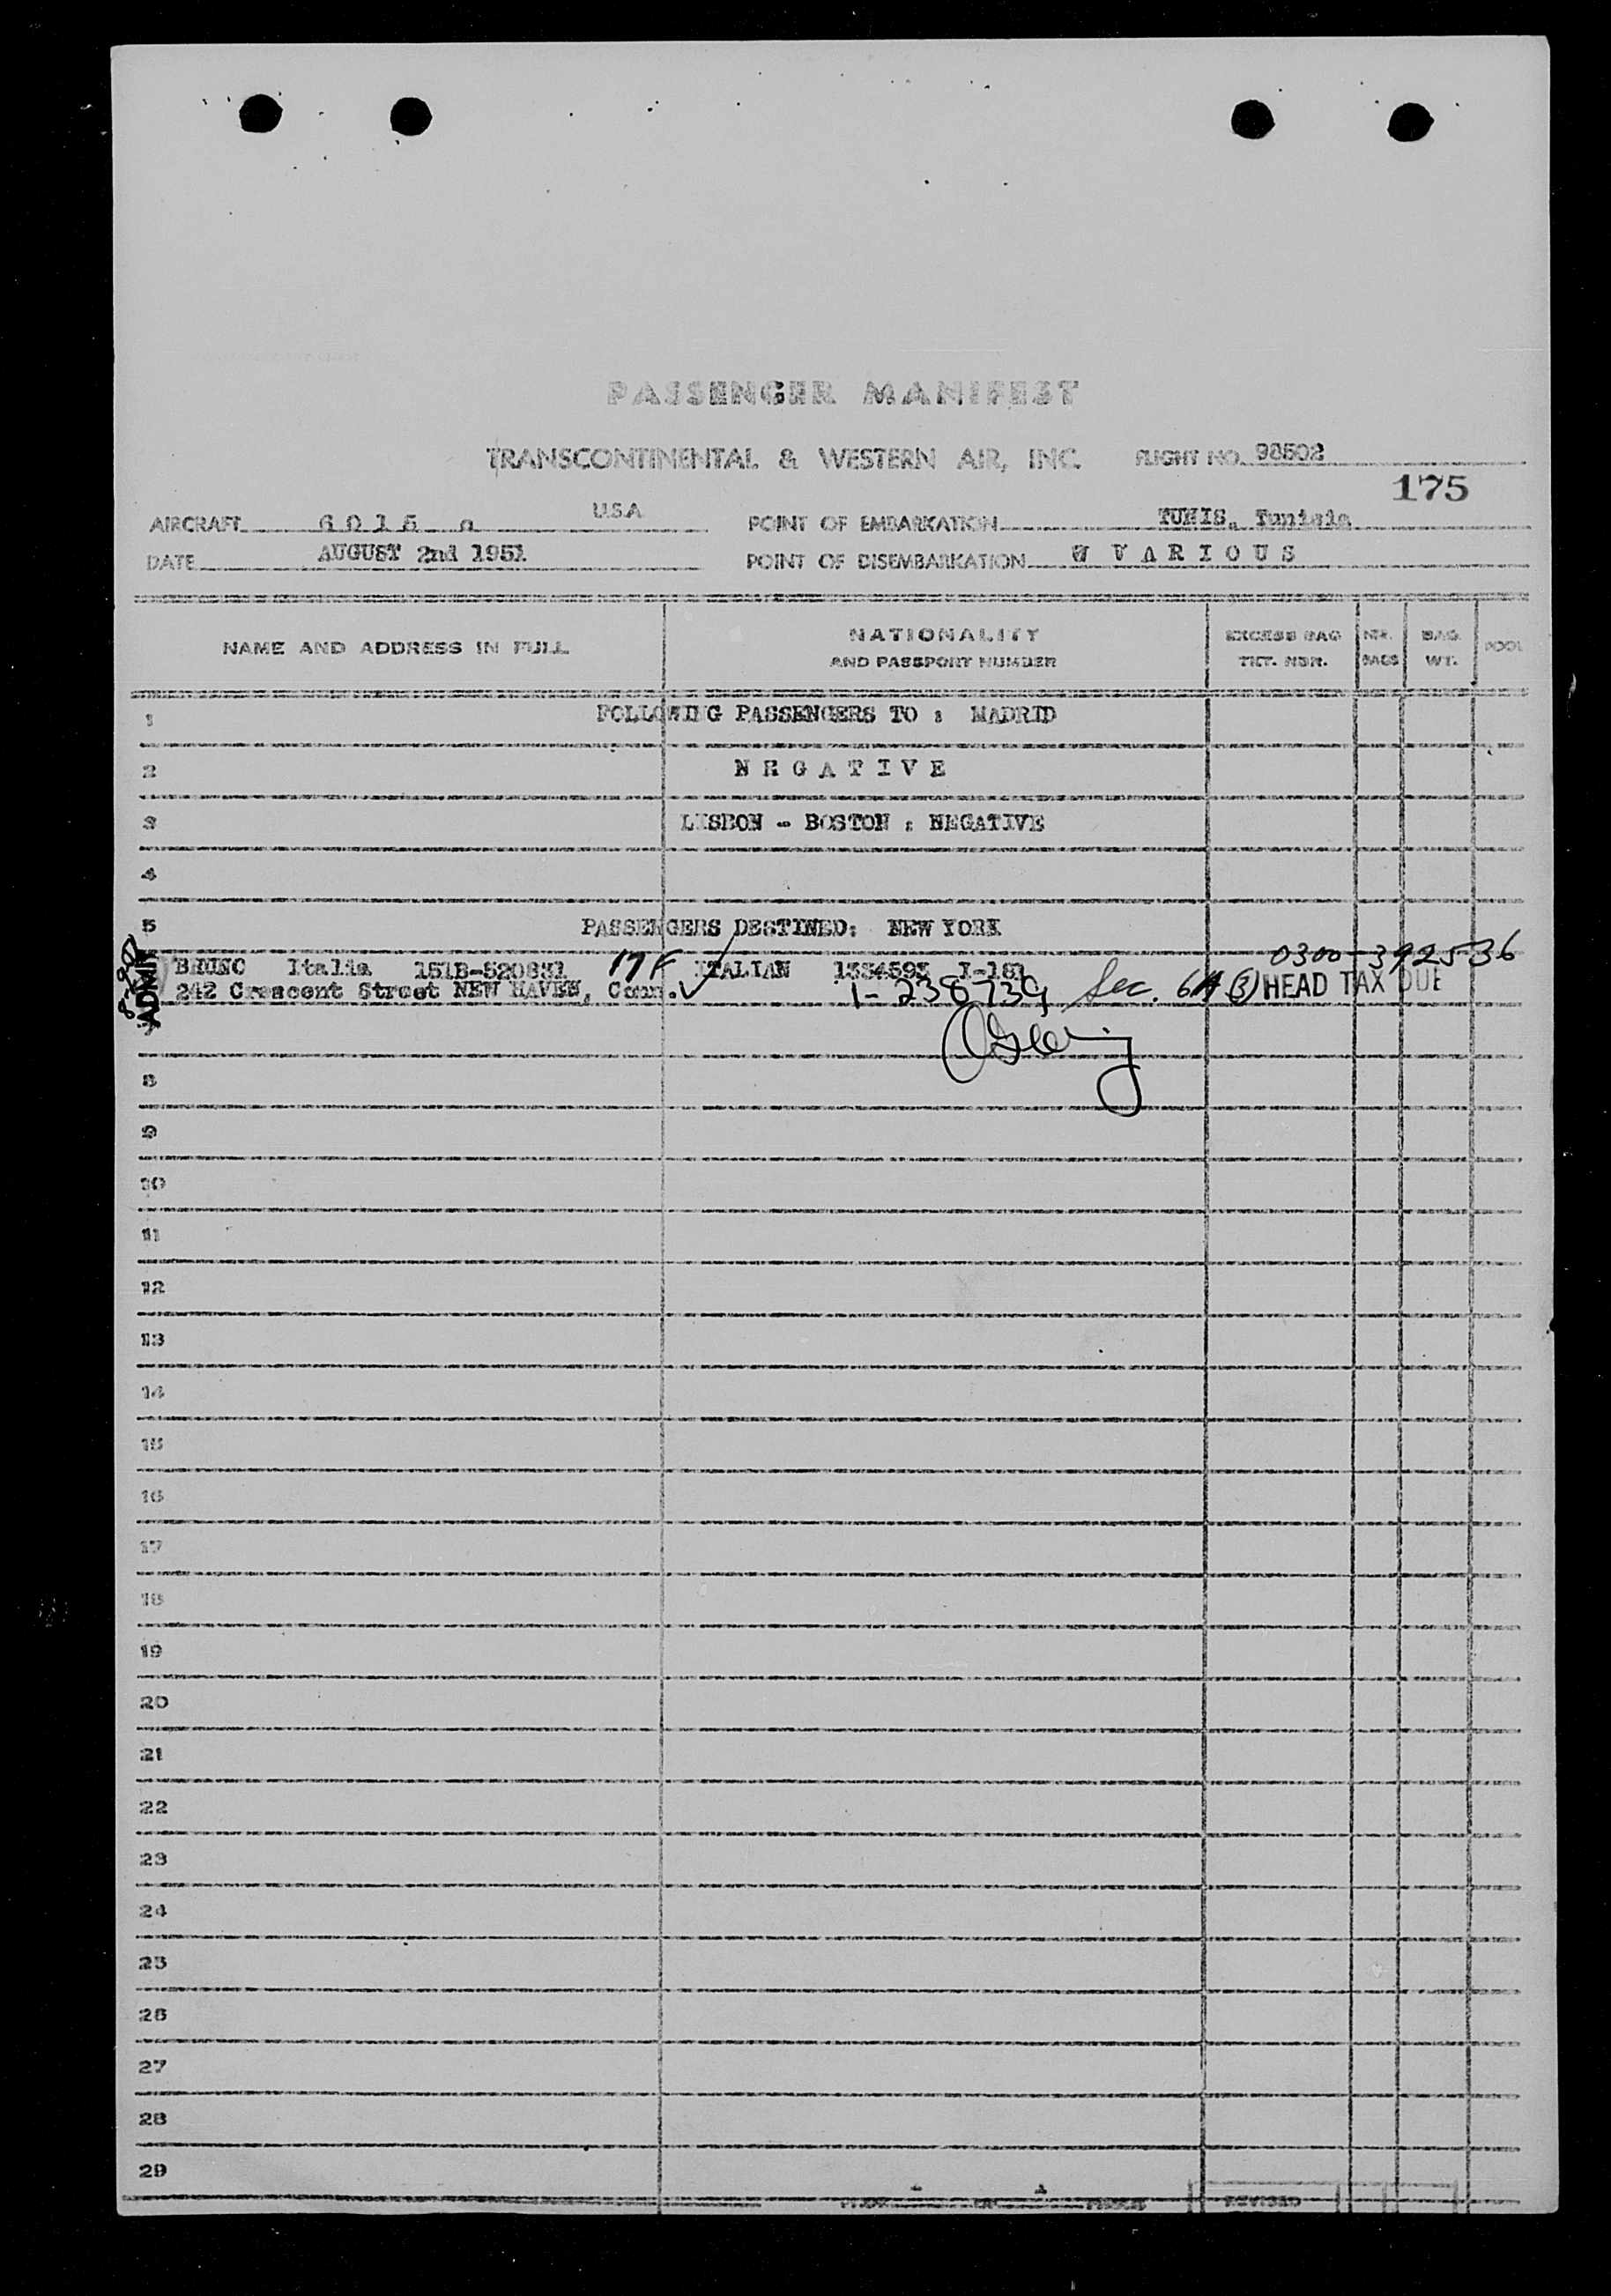 PASSENGER MANIFEST
TRANSCONTINENTAL & WESTERN AIR, INC. FLIGHT NO. 98502
175
AIRCRAFT 6 0 1 5 U.S.A POINT OF EMBARKATION TUNIS, Tunisia
DATE AUGUST 2nd 1951 POINT OF DISEMBARKATION V A R I O U S
NAME AND ADDRESS IN FULL NATIONALITY AND PASSPORT NUMBER EXCESS BAG TKT. NBR. NBR. BAGS BAG. WT. POOL
1 FOLLOWING PASSENGERS TO : MADRID
2 N E G A T I V E
3 LISBON - BOSTON : NEGATIVE
4
5 PASSENGERS DESTINED: NEW YORK
ADMIT BRUNO Italia 151B-520831 ITALIAN 0300-392536
242 Crescent Street NEW HAVEN, Conn. 1-238739 Sec. 6A (3) HEAD TAX DUE
8
9
10
11
12
13
14
15
16
17
18
19
20
21
22
23
24
25
26
27
28
29
REVISED